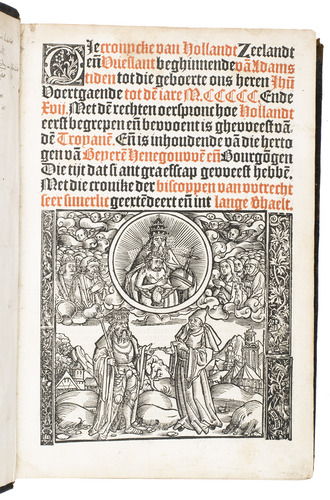 Die cronycke van Hollandt Zeelandt
eñ Vrieslant beghinnende vā Adams
tiden tot die geboerte ons heren Jhū
Voertgaende tot dē iare M.CCCCC. Ende
xvij. Met dē rechten oerspronc hoe Hollandt
eerst begrepen eñ bewoent is gheweest vā
dē Troyanē. Eñ is inhoudende vā die hertogen
van Beyerē Henegouwē eñ Bourgōgē
Die tijt dat si ant graefscap geweest hebbē
Met die cronike der biscoppen van vutrecht
seer suuerlic geextēdeert eñ int lange vhaelt.